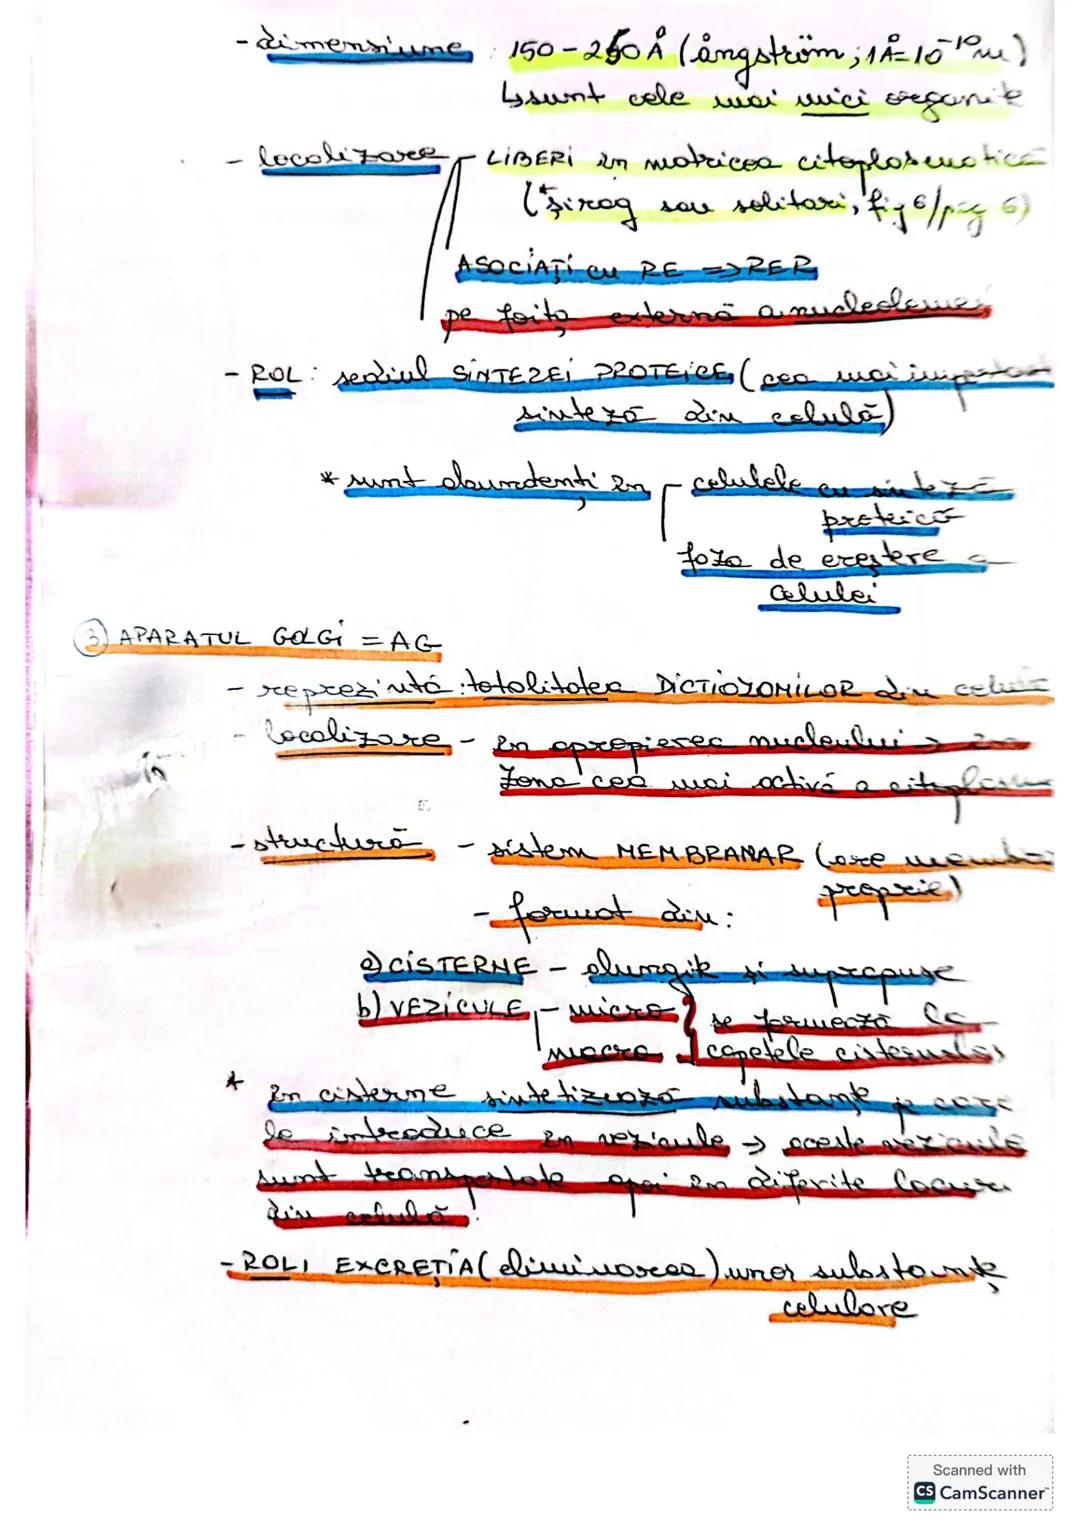 - dimensiune : 150 - 250 Å (ångström; 1Å=10⁻¹⁰m)
↳ sunt cele mai mici organite
- localizare - LIBERI în matricea citoplasmatică
(*șirag sau solitari, fig 6/pag 6)
ASOCIAȚI cu RE => RER
pe foița externă a nucleolemei
- ROL: sediul SINTEZEI PROTEICE (cea mai importantă
sinteză din celulă)
* sunt abundenți în - celulele cu sinteză
proteică
faza de creștere a
celulei
3 APARATUL GOLGI = AG
- reprezintă : totalitatea DICTIOZOMILOR din celulă
- localizare - în apropierea nucleului → în
zona cea mai activă a citoplasmei
- structură - sistem MEMBRANAR (are membrană
proprie)
- format din :
a) CISTERNE - alungite și suprapuse
b) VEZICULE - micro } se formează la
macro capetele cisternelor
* În cisterne sintetizează substanțe pe care
le introduce în vezicule → aceste vezicule
sunt transportate apoi în diferite locuri
din celulă!
- ROL: EXCREȚIA (eliminarea) unor substanțe
celulare
Scanned with
CS CamScanner